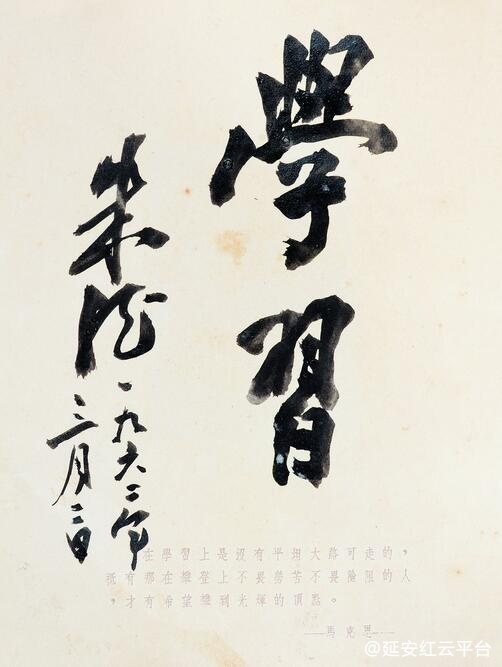 學習
朱德
一九六二年
三月三日
在學習上是沒有平坦大路可走的，
祇有那在攀登上不畏勞苦不畏險阻的人
，才有希望攀到光輝的頂點。
——馬克思——
@延安红云平台